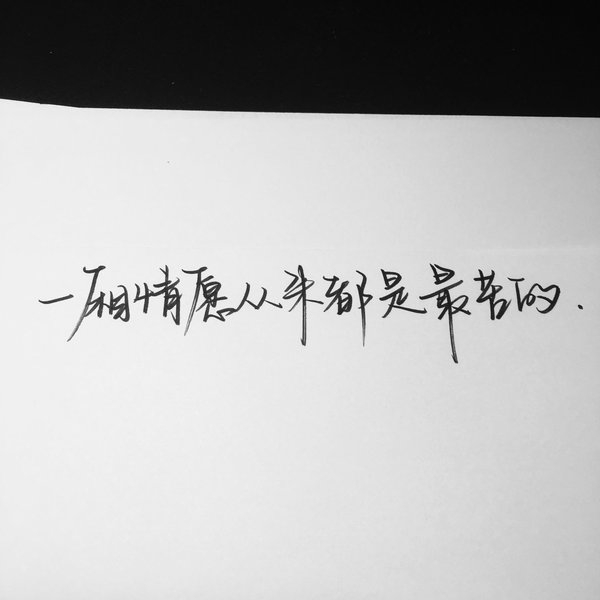 一厢情愿从来都是最苦的.